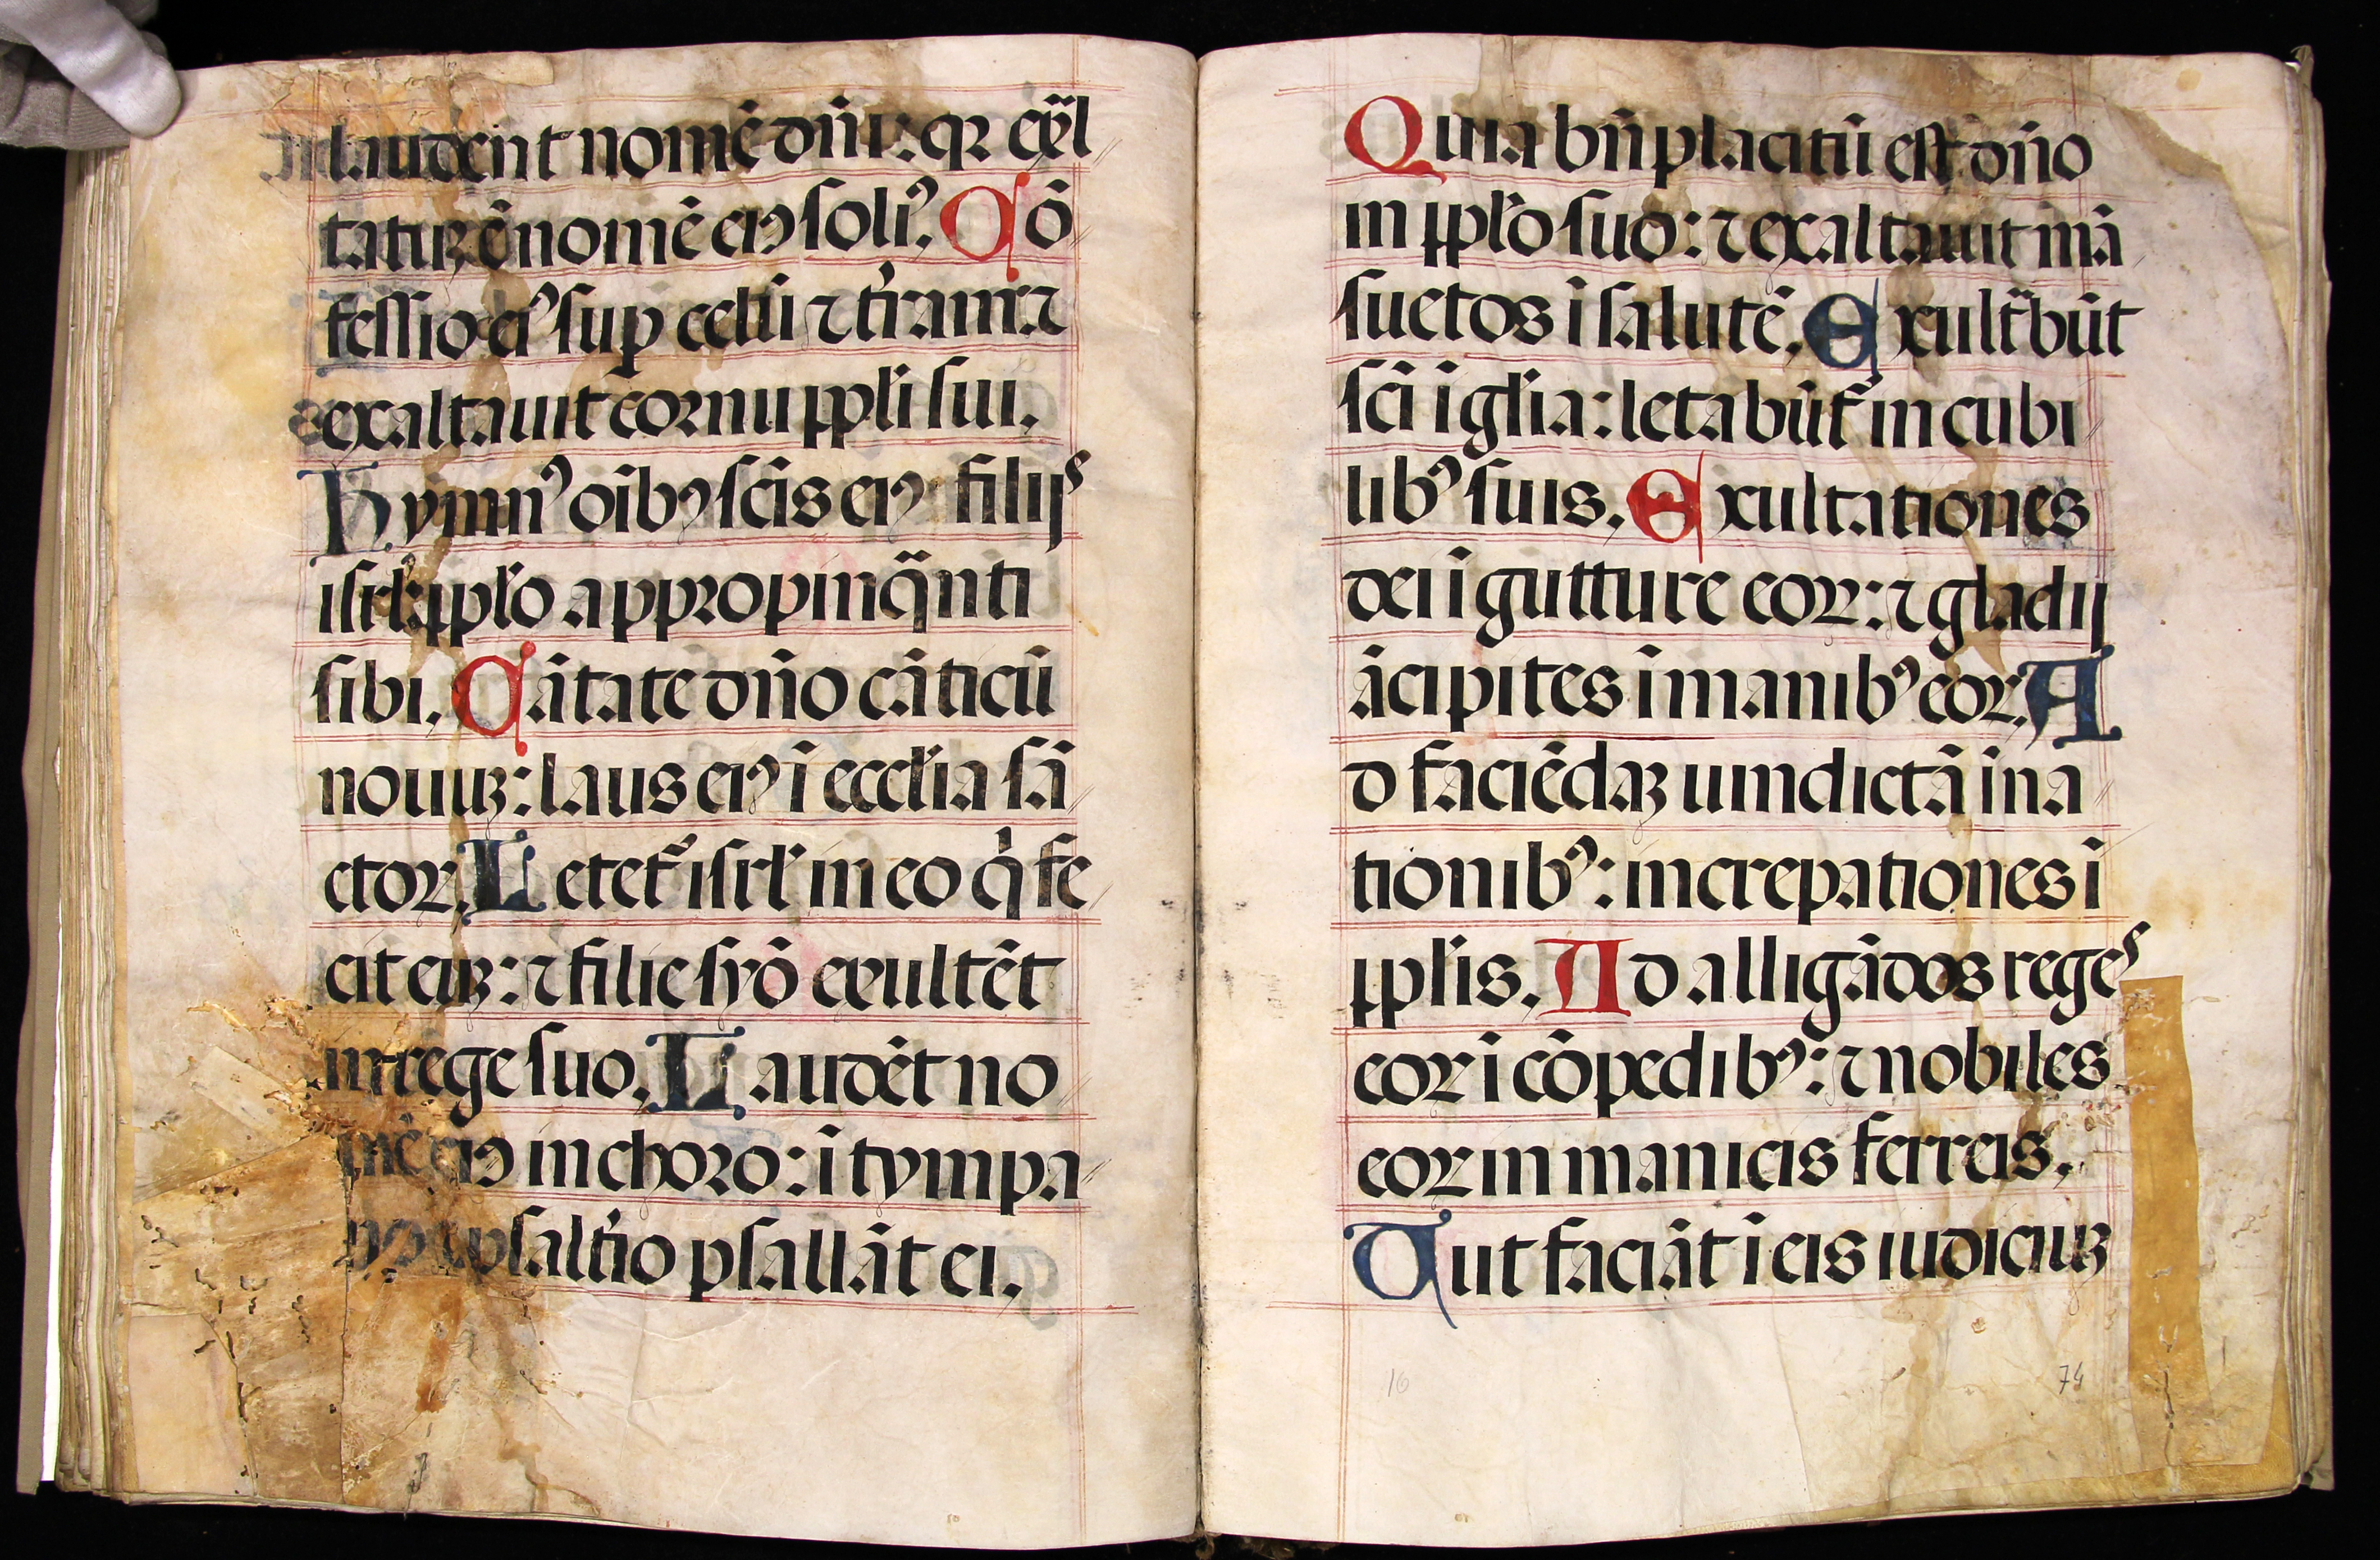 laudent nomē dñi: qꝛ exͣl
tatuꝫ ē nomē eiꝰ soliꝰ. Cō
fessio eiꝰ sup celū ⁊ tr̃am: ⁊
exaltauit cornu ppl̃i sui.
Hymnꝰ oĩbꝰ scĩs eiꝰ filijs
isrl̃: ppl̃o appropinq̃nti
sibi. Cãtate dño cãticũ
nouuꝫ: laus eiꝰ ĩ eccl̃ia sã
ctoꝝ. Letet᷑ isrl̃ in eo q̇ fe
cit euꝫ: ⁊ filie syõ exultẽt
in rege suo. Laudẽt no
mẽ eiꝰ in choro: ĩ tympa
no ⁊ psalt̃io psallãt ei.
Quia bñplacitũ est dño
in ppl̃o suo: ⁊ exaltauit mã
suetos ĩ salutẽ. Exultͣbũt
scĩ ĩ gl̃ia: letabũt᷑ in cubi
libꝰ suis. Exultationes
dei ĩ gutture eoꝝ: ⁊ gladij
ãcipites ĩ manibꝰ eoꝝ. A
d faciẽdaꝫ uindictã in na
tionibꝰ: increpationes ĩ
ppl̃is. Ad alligãdos reges
eoꝝ ĩ cõpedibꝰ: ⁊ nobiles
eoꝝ in manicis ferreis.
Ut faciãt ĩ eis iudiciuꝫ
16 74